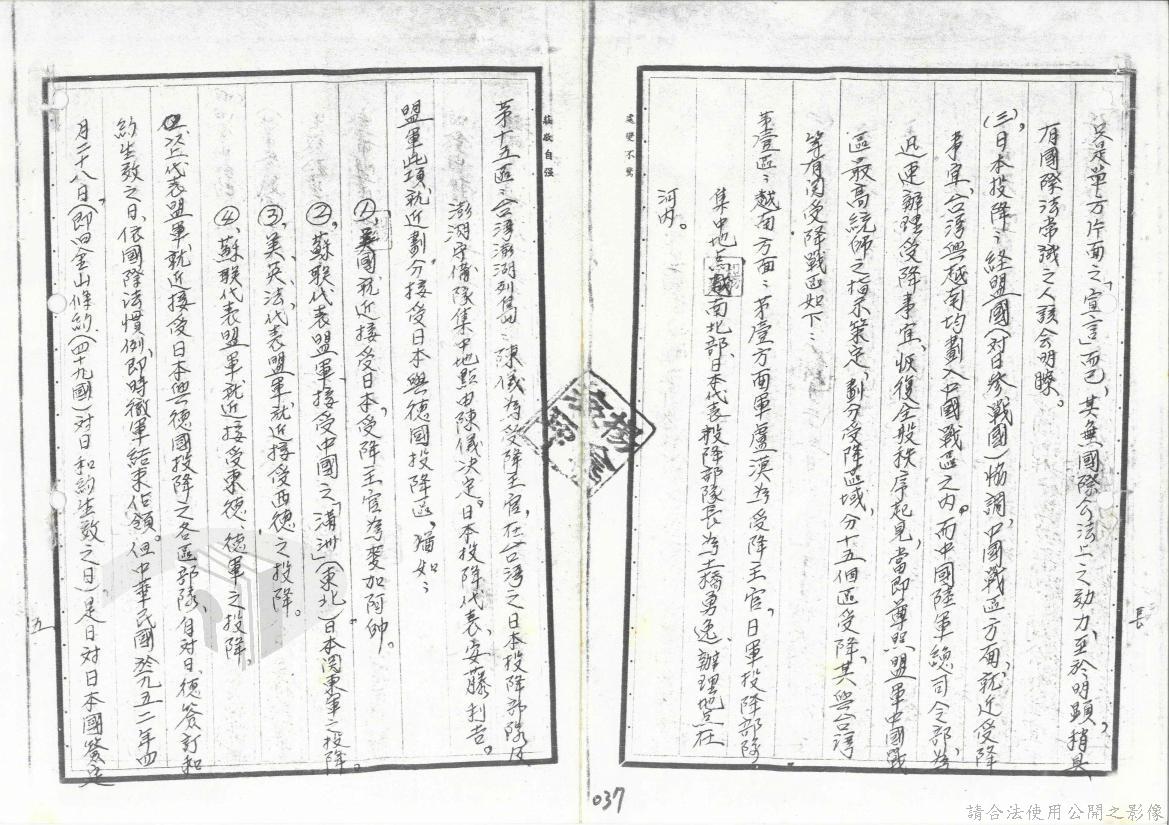 只是單方片面之「宣言」而已，其無國際公法上之効力，至於明顯，稍具
有國際法常識之人該會明瞭。
(三)、日本投降：經盟國(對日參戰國)協調，中國戰區方面，就近受降
事宜、台湾與越南均劃入中國戰區之內。而中國陸軍總司令部為
迅速辦理受降事宜，恢復全般秩序起見，當即尊照盟軍中國戰
區最高統帥之指示策定，劃分受降區域，分十五個區受降，其與台湾
等有関受降戰區如下：
第壹區：越南方面：第壹方面軍盧漢為受降主官，日軍投降部隊
集中地点越南北部、日本代表投降部隊長為土橋勇逸、辦理地点在
河內。
處變不驚
莊敬自強
第十五區：台湾澎湖列島：陳儀為受降主官，在台湾之日本投降部隊及
澎湖守備隊集中地點由陳儀決定。日本投降代表、安藤利吉。
盟軍此項就近劃分接受日本與德國投降區，猶如：
①、美國就近接受日本，受降主官為麥加阿帥。
②、蘇联代表盟軍、接受中國之「滿洲」(東北)日本関東軍之投降。
③、美、英、法、代表盟軍就近接受西德之投降。
④、蘇联代表盟軍就近接受東德、德軍之投降。
以上代表盟軍就近接受日本與德國投降之各區部隊、自對日、德簽訂和
約生效之日、依國際法慣例，即時撤軍結束佔領。但中華民國於一九五二年四
月二十八日，(即旧金山條約，(四十九國)對日和約生效之日)是日對日本國簽定
五
037
請合法使用公開之影像